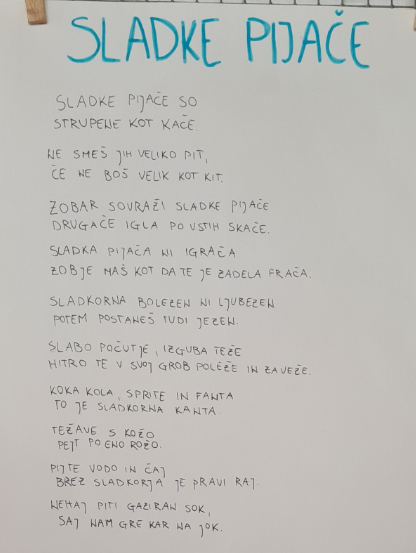 SLADKE PIJAČE
SLADKE PIJAČE SO
STRUPENE KOT KAČE
NE SMEŠ JIH VELIKO PIT,
ČE NE BOŠ VELIK KOT KIT.
ZOBAR SOVRAŽI SLADKE PIJAČE
DRUGAČE IGLA PO USTIH SKAČE.
SLADKA PIJAČA NI IGRAČA
ZOBJE MAŠ KOT DA TE JE ZADELA FRAČA.
SLADKORNA BOLEZEN NI LJUBEZEN
POTEM POSTANEŠ TUDI JEZEN.
SLABO POČUTJE, IZGUBA TEŽE
HITRO TE V SVOJ GROB POLEŽE IN ZAVEŽE.
KOKA KOLA, SPRITE IN FANTA
TO JE SLADKORNA KANTA.
TEŽAVE S KOŽO
PEJT PO ENO ROŽO.
PIJTE VODO IN ČAJ
BREZ SLADKORJA JE PRAVI RAJ.
NEHAJ PITI GAZIRAN SOK,
SAJ NAM GRE KAR NA JOK.